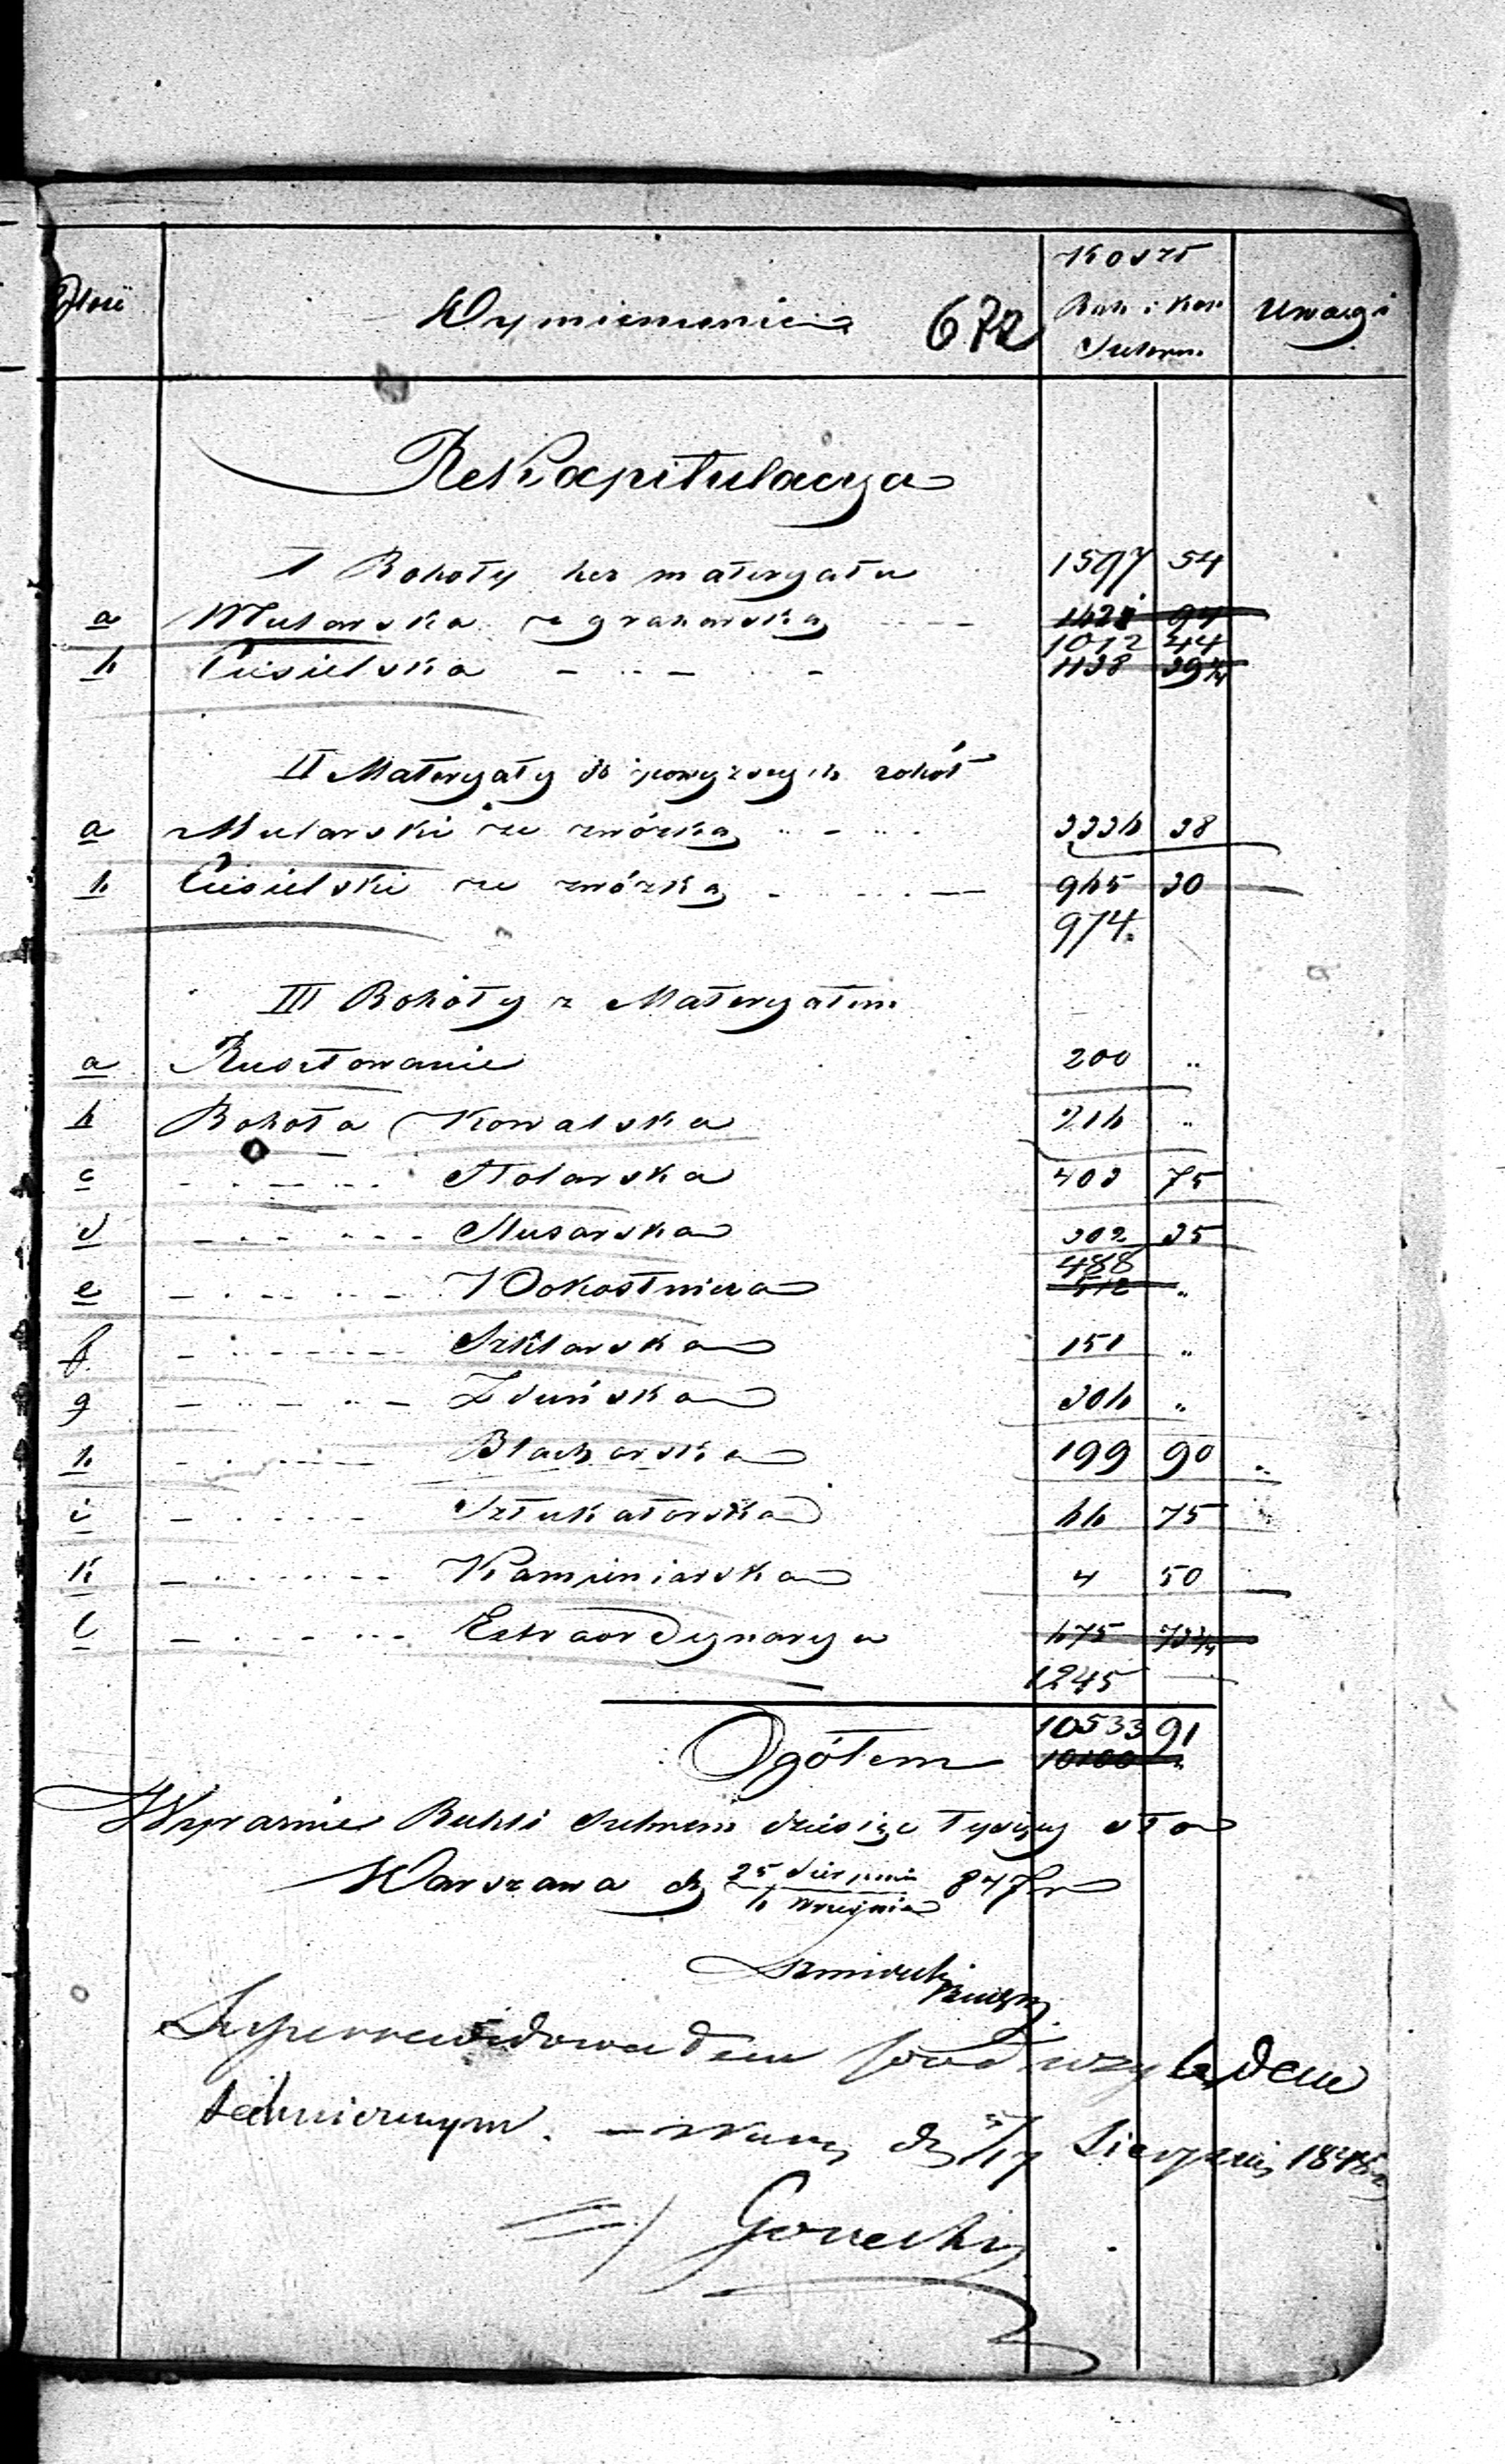 Ilość Wymienienie 672 Koszt Rub: i Kop Srebrem Uwagi
Rekapitulacya
I Roboty bez materyału 1597 54
a Mularska z grabarską 1628 94
1012 44
b Ciesielska 1138 39¾
II Materyały do powyższych robót
a Mularski ze zwózką 3336 38
b Ciesielski ze zwózką 965 30
974.
III Roboty z Materyałem
a Rusztowanie 200 "
b Robota Kowalska 216 "
c Stolarska 403 75
d Slusarska 302 35
488
e Pokostnicza 512 "
f Szklarska 151 "
g Zduńska 306 "
h Blacharska 199 90
i Sztukatorska 66 75
k Kamieniarska 4 50
l Extraordynarya 675 73¾
1245 —
10533 91
Ogółem 10100 "
Wyraźnie Rubli Srebrem dziesięć tysięcy sto
Warszawa d. 25 Sierpnia / 6 Września 847 r
Budown.
Superrewidowałem pod względem
technicznym. — Warsz. d. 5/17 Sierpnia 1848 r
Gorecki